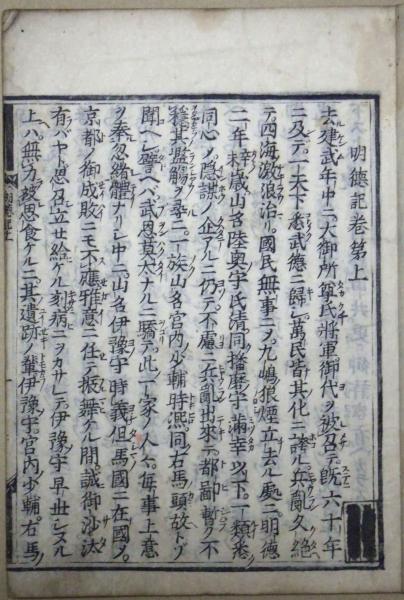 明德記卷第上
去建武年中ニ大御所尊氏將軍御代ヲ被召テ既六十年
ニ及テ一天下悉武德ニ歸シ萬民皆其化ニ誇ル兵亂久絕
テ四海激浪治リ國民無事ニメ九嶋狼煙立去ル處ニ明德
二年辛未歳山名陸奥守氏清同播磨守滿幸以下一類悉
同心メ隱謀ノ企アルニ仍テ不慮ニ兵亂出來テ都鄙暫ク不
穩其濫觴ヲ尋ニ一族山名宮内少輔時熙同右馬頭故トゾ
聞ヘシ譬ヘバ武恩莫太ナルニ驕テ此一家ノ人々毎事上意
ヲ奉忽緒體ナリシ中ニ山名伊豫守時義但馬國ニ在國メ
京都ノ御成敗ニモ不應雅意ニ任テ振舞ケル間誠御沙汰
有バヤト思召立セ給ケル刻病ニヲカサレテ伊豫守早世シヌル
上ハ無力被思食ケルニ其遺跡ノ輩伊豫守宮内少輔右馬